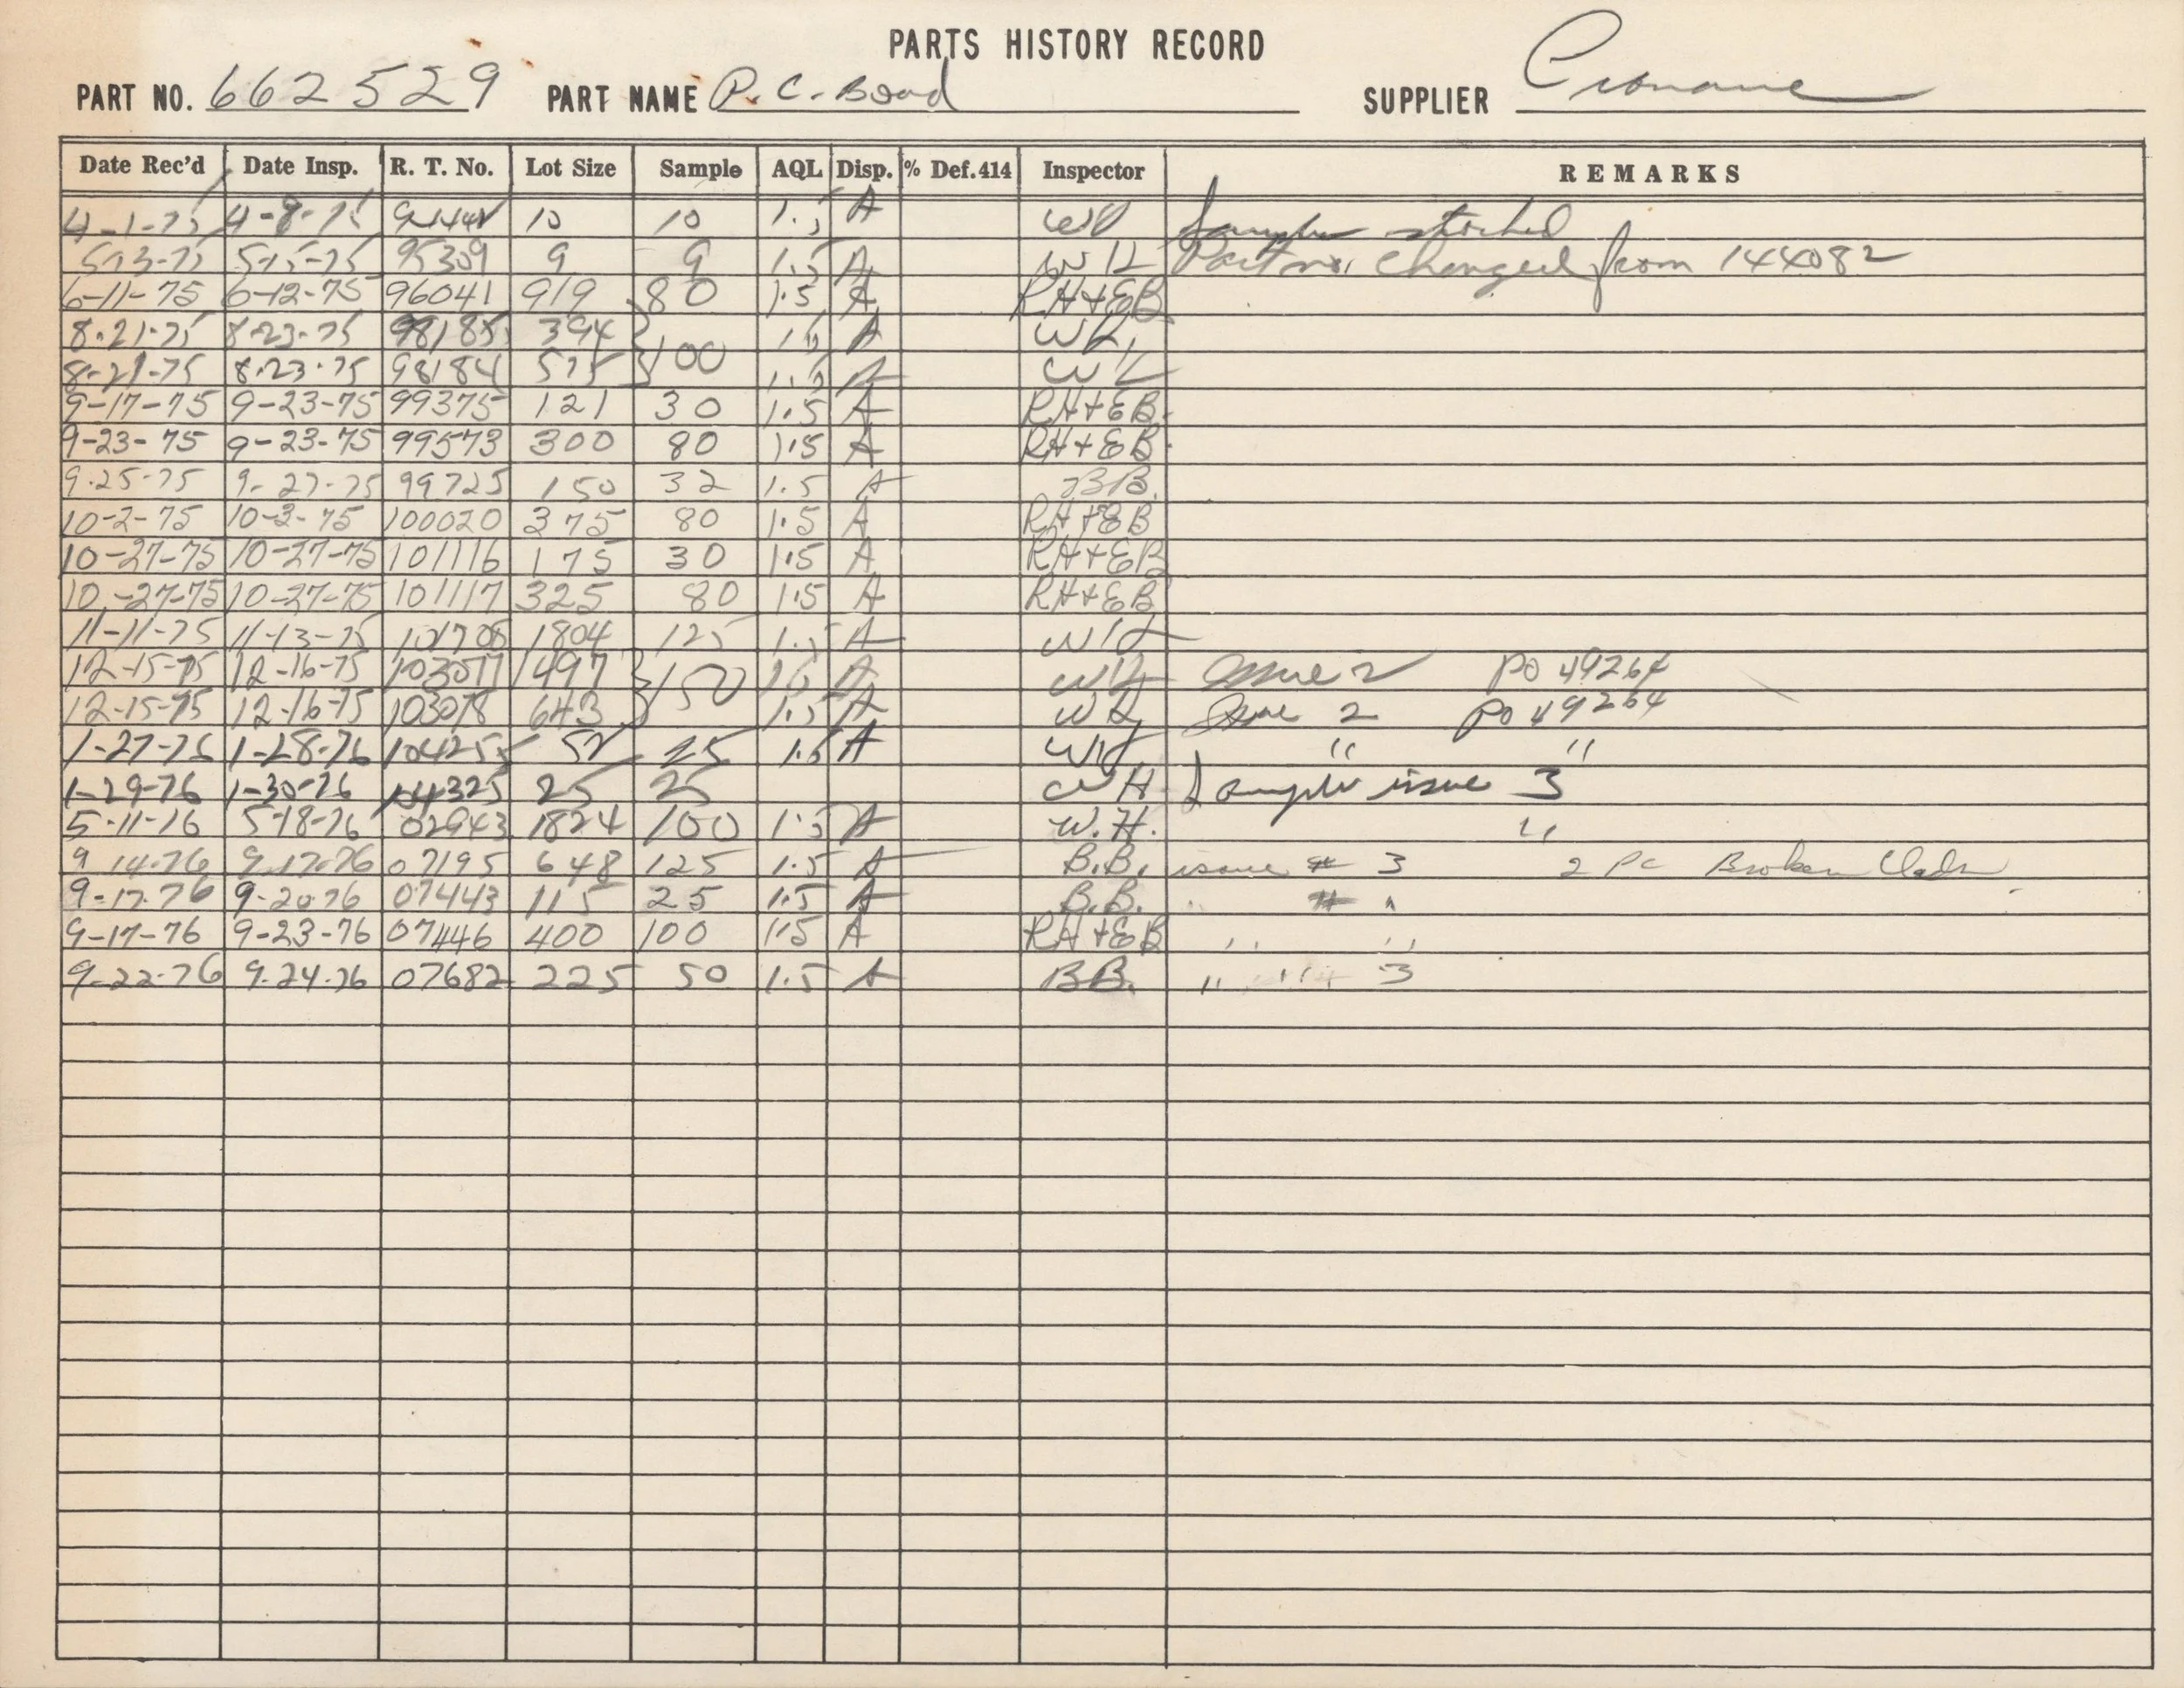 PARTS HISTORY RECORD
PART NO. 662529 PART NAME P. C. Board SUPPLIER
Date Rec'd Date Insp. R. T. No. Lot Size Sample AQL Disp. % Def.414 Inspector REMARKS
4-1-75 4-8-75 10 10 1.5 A Samples attached
5-13-75 5-15-75 95309 9 9 1.5 A WH Part no. changed from 144082
6-11-75 6-12-75 96041 919 80 1.5 A RH+EB
8-21-75 8-23-75 98185 394 } 100 1.5 A WH
8-21-75 8-23-75 98184 575 1.5 A WH
9-17-75 9-23-75 99375 121 30 1.5 A RH+EB.
9-23-75 9-23-75 99573 300 80 1.5 A RH+EB.
9-25-75 9-27-75 99725 150 32 1.5 A BB.
10-2-75 10-3-75 100020 375 80 1.5 A RH+EB
10-27-75 10-27-75 101116 175 30 1.5 A RH+EB
10-27-75 10-27-75 101117 325 80 1.5 A RH+EB
11-11-75 11-13-75 101705 1804 125 1.5 A WH
12-15-75 12-16-75 103077 1497 } 150 1.5 A WH Issue 2 PO 49264
12-15-75 12-16-75 103078 643 1.5 A WH Issue 2 PO 49264
1-27-76 1-28-76 104255 52 25 1.5 A WH " "
1-29-76 1-30-76 104325 25 25 WH Sample issue 3
5-11-76 5-18-76 02943 1824 100 1.5 A W.H. "
9-14-76 9-17-76 07195 648 125 1.5 A B.B. issue # 3 2 Pc Broken
9-17-76 9-20-76 07443 115 25 1.5 A B.B. " # "
9-17-76 9-23-76 07446 400 100 1.5 A RH+EB " "
9-22-76 9-24-76 07682 225 50 1.5 A BB. " " 3